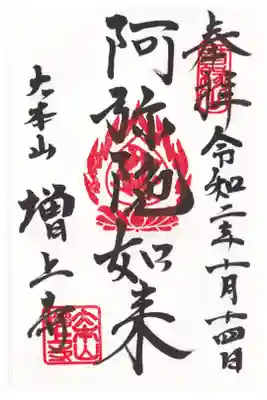 奉拝
令和二年十月十四日
阿弥陀如来
大本山
増上寺